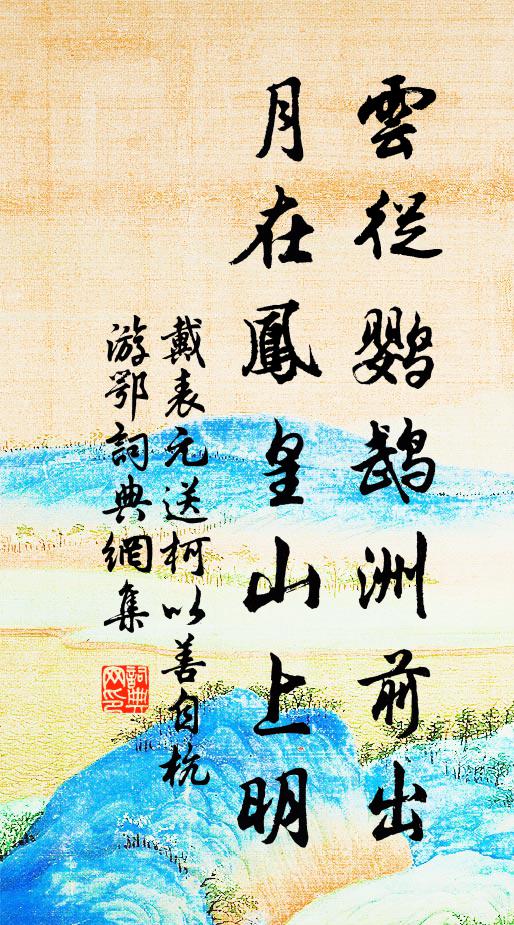 雲從鸚鵡洲前出
月在鳳皇山上明
戴表元送柯以善自杭
游鄂詞典網集